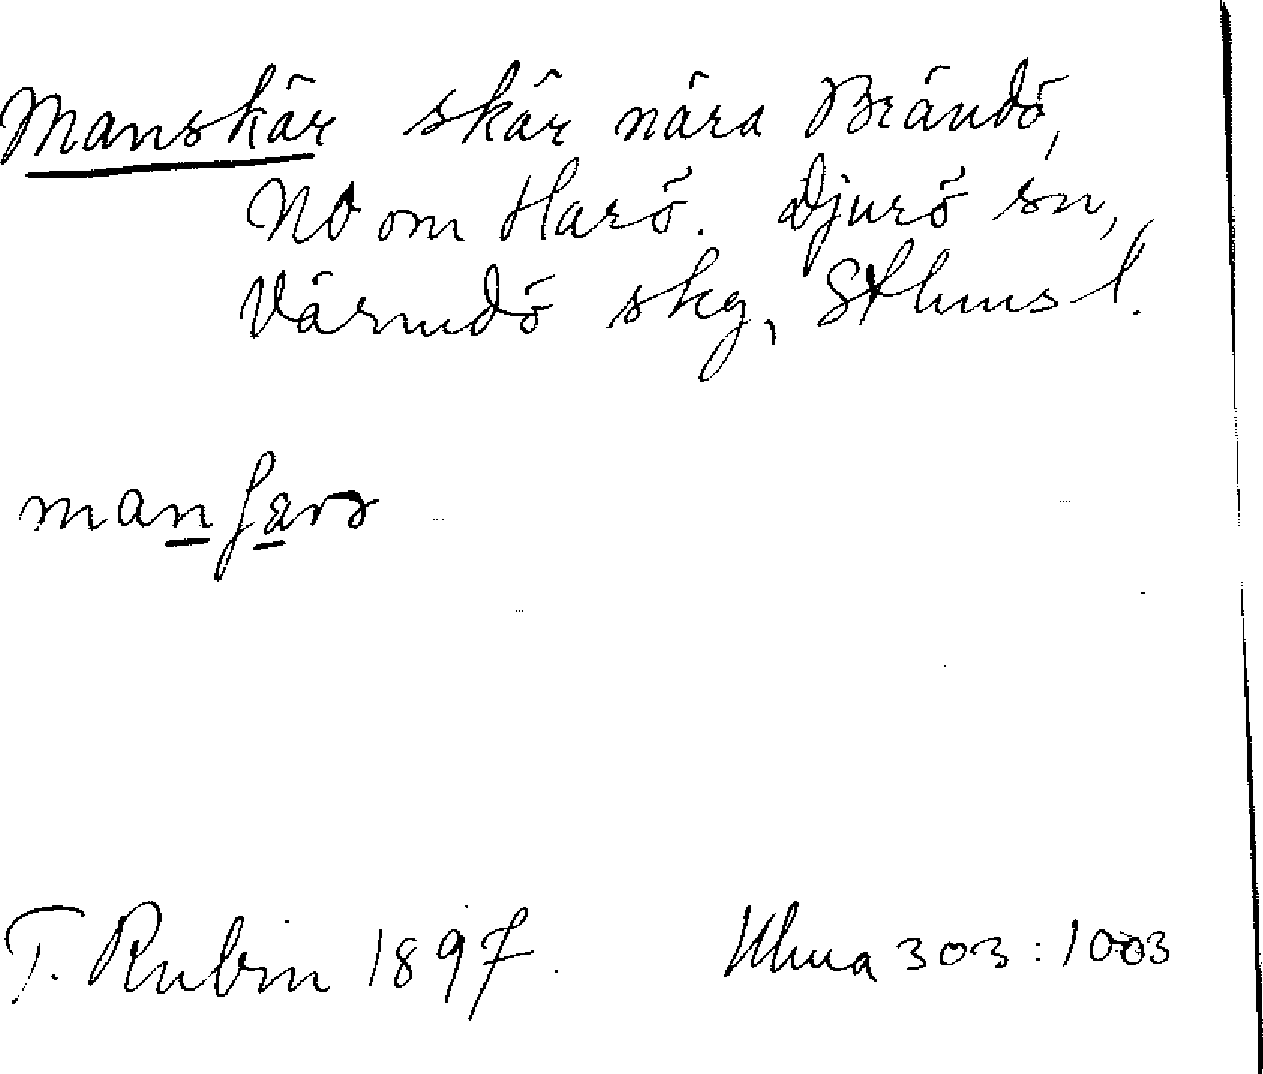 Manskär skär nära Brändö,
NO om Harö. Djurö sn,
Värmdö skg, Sthms l.
T. Rubin 1897. Uhua 303:1003